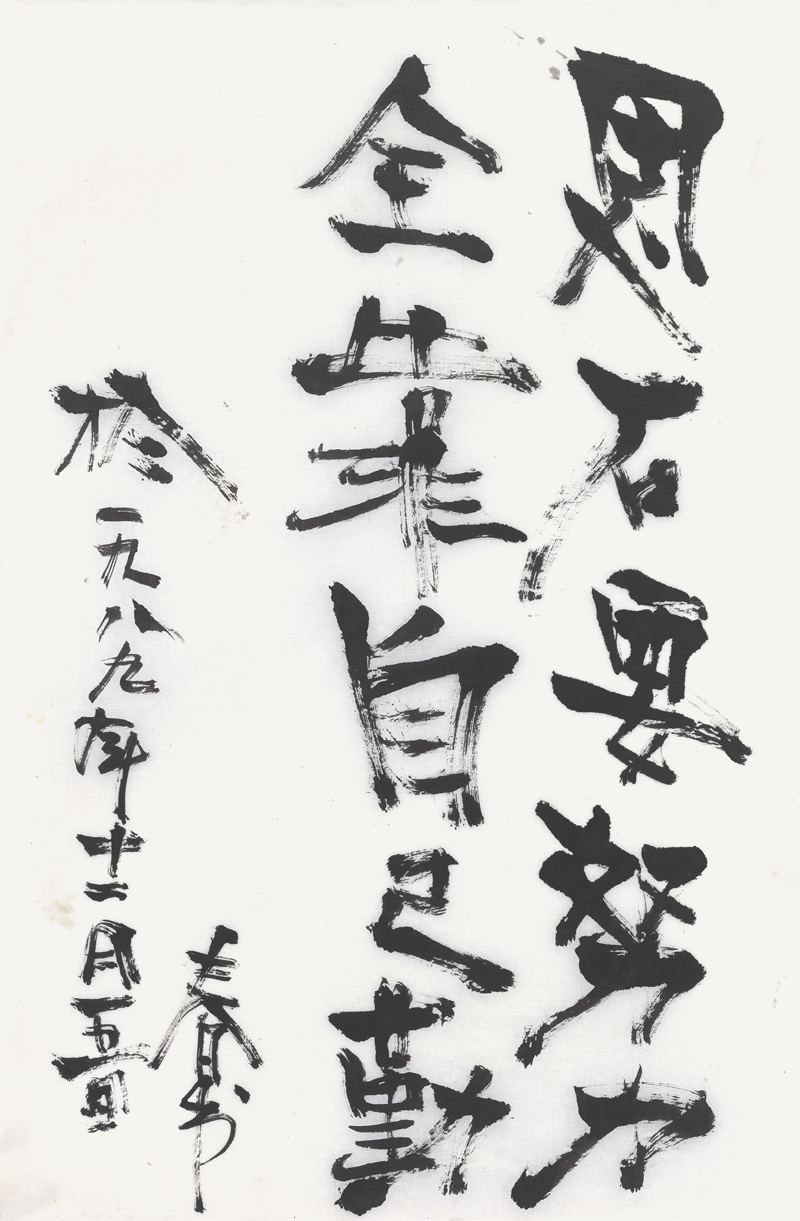 石要努力
全靠自己勤
於一九八九年十二月五日
春书